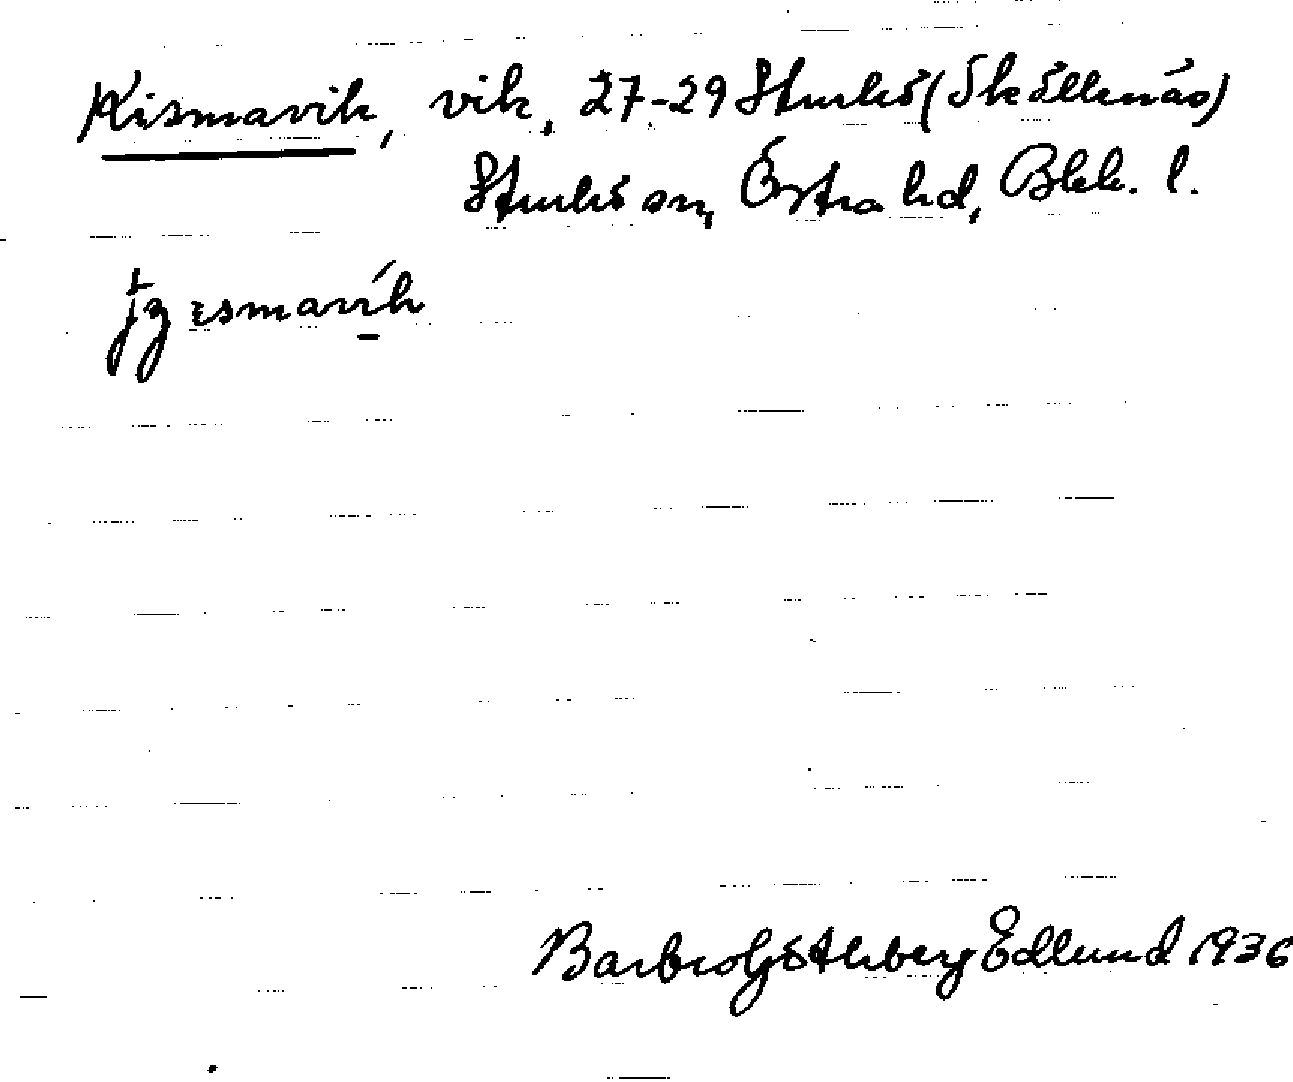 Kismavik, vik, 27-29 Sturkö (Skällenäs)
Sturkö sn, Östra hd, Blek. l.
Barbro Göthberg Edlund 1936